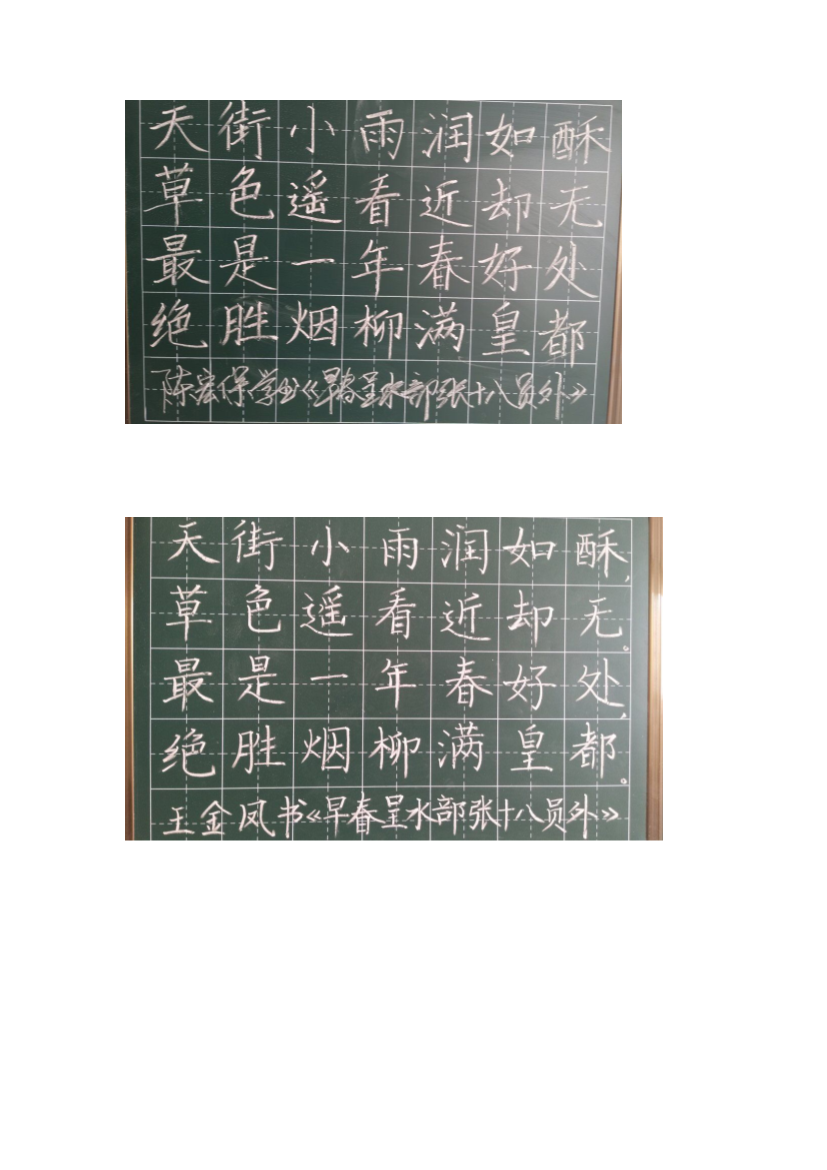 天街小雨润如酥
草色遥看近却无
最是一年春好处
绝胜烟柳满皇都
陈宏保学书《早春呈水部张十八员外》
天街小雨润如酥,
草色遥看近却无。
最是一年春好处,
绝胜烟柳满皇都。
王金凤书《早春呈水部张十八员外》